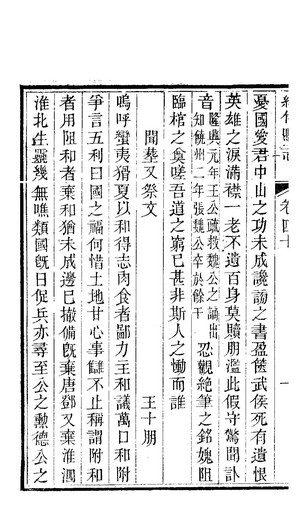 憂國愛君中山之功未成讒謗之書盈篋武侯死有遺恨
英雄之淚滿襟一老不遺百身莫贖朋濫此假守驚聞訃
音隆興元年王公疏救魏公之謫出知饒州二年張魏公卒於餘干忍觀絶筆之銘媿阻
臨棺之奠嗟吾道之窮已甚非斯人之慟而誰
聞葬又祭文
王十朋
嗚呼蠻夷猾夏以和得志肉食者鄙力主和議萬口和附
爭言五利曰國之福何惜土地甘心事讎不止稱謂附和
者用阻和者棄和猶未成邊已撤備旣棄唐鄧又棄淮泗
淮北生靈幾無噍類國旣日促兵亦尋至公之勲德公之
卷四十